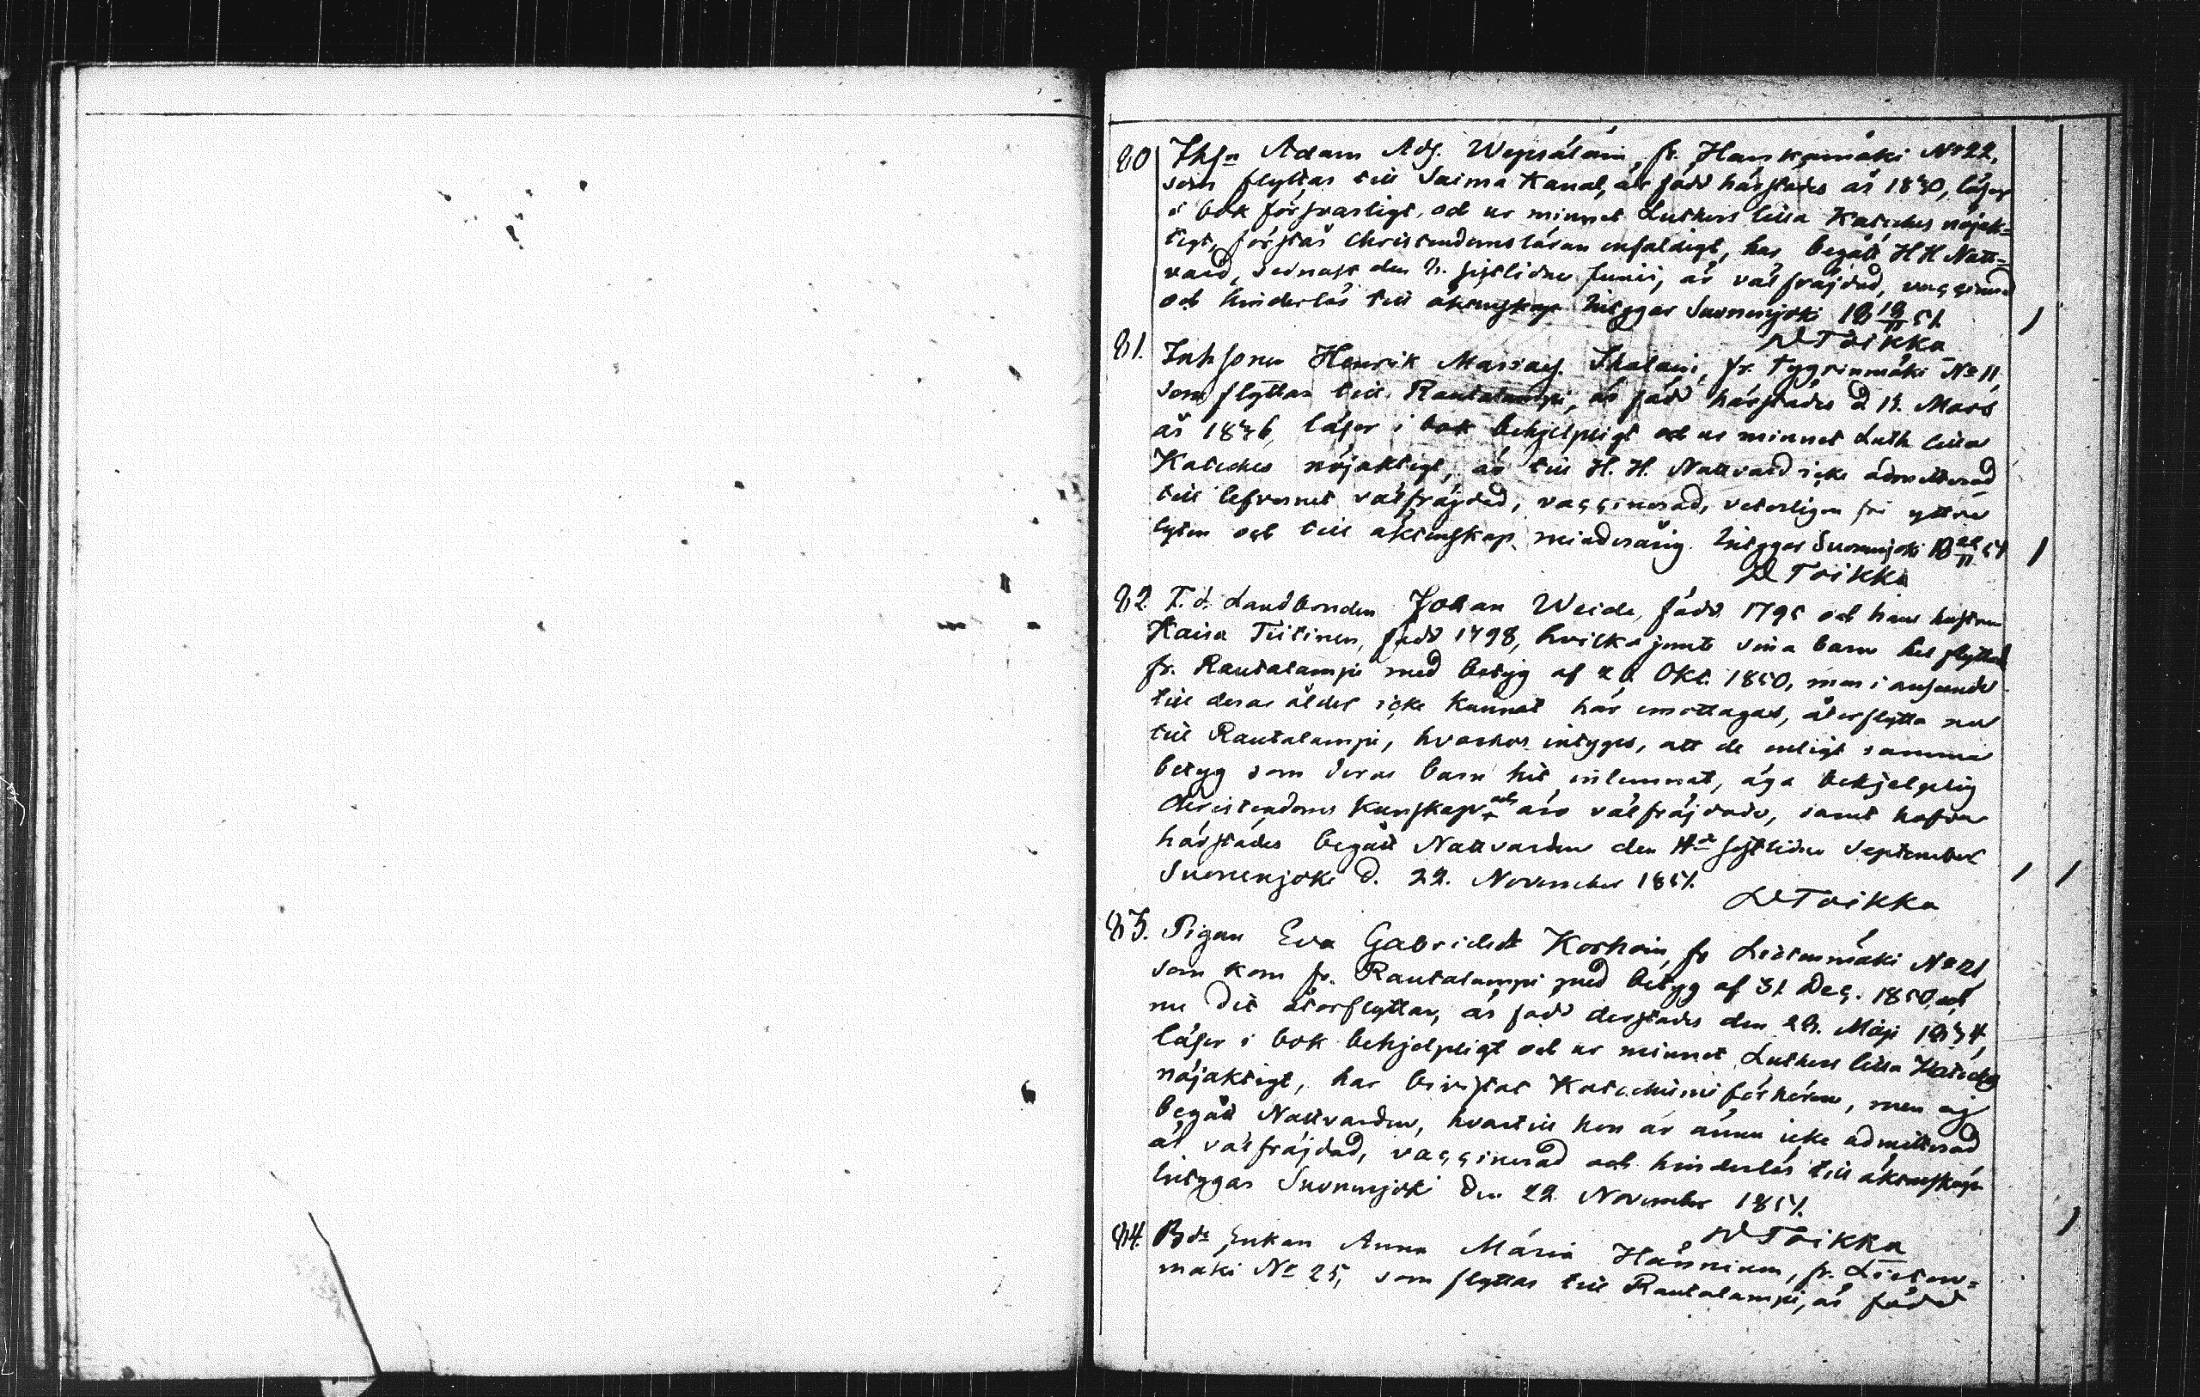 80 Ihsn Adam Adf. Wepsäläin, fr. Hanhimäki No 22,
som flyttar till Saima Kanal, är född härstädes år 1830, läser
i bok försvarligt, och ur minnet Luthers lilla Kateches nöjak=
tigt, förstår Christendomsläran enfaldigt, har begått H H Natt=
vard, sednast den 8. sistlidne Junii, är välfräjdad, vaccinerad
och hinderlös till äktenskap. Intygar Suonenjoki 18 18/11 51.
D Toikka
81. Inhsonen Henrik Mariaf. Ihalain, fr. Tyyrinmäki No 11,
som flyttar till Rautalampi, är född härstädes d 19. Mars
år 1836, läser i bok behjelpligt och ur minnet Luth lilla
Kateches nöjaktigt, är till H. H. Nattvard icke admitterad
till lefvernet välfräjdad, vaccinerad, veterligen fri yttre
lyten och till äktenskap minderårig. Intygar Suonenjoki 18 22/11 51
D Toikka
82. F. d. Landbonden Johan Weide, född 1795 och hans hustru
Kaisa Tiitinen, född 1798, hvilka jemte sina barn hit flyttat
fr. Rautalampi med betyg af 20 Okt. 1850, men i anseende
till deras ålder icke kunnat här emottagas, återflytta nu
till Rautalampi, hvarhos intyges, att de enligt samma
betyg som deras barn hit inlemnat, äga behjelplig
Christendoms Kunskap och äro välfräjdade, samt hafva
härstädes begått Nattvarden den 14de sistlidne September
Suonenjoki d. 22. November 1851.
D Toikka
83. Pigan Eva Gabrielsdr Korhoin, fr Lietenmäki No 21,
som kom fr. Rautalampi med betyg af 31 Dec. 1850, och
nu dit återflyttar, är född derstädes den 28. Maji 1834,
läser i bok behjelpligt och ur minnet Luthers lilla Kateches
nöjaktigt, har bivistat Katechismiförhören, men ej
begått Nattvarden, hvartill hon är ännu icke admitterad
är välfräjdad, vaccinerad och hinderlös till äktenskap.
Intygar Suonenjoki den 22 November 1851.
D Toikka
84. Bde Enkan Anna Maria Hänninen, fr. Lieten=
mäki No 25, som flyttar till Rautalampi, är född